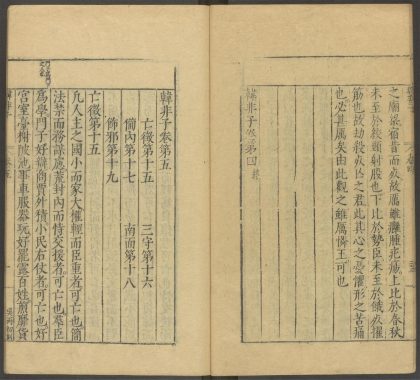 之廟梁宿昔而死故厲雖癰腫疕瘍上比於春秋
未至於絞頸射股也下比於近世未至於餓死擢
筋也故劫殺死亡之君此其心之憂懼形之苦痛
也必甚厲矣由此觀之雖厲憐王可也
韓非子卷第四
韓非子卷第五
亡徵第十五
三守第十六
備內第十七
南面第十八
飾邪第十九
亡徵第十五
凡人主之國小而家大權輕而臣重者可亡也簡
法禁而務謀慮荒封內而恃交援者可亡也羣臣
為學門子好辯商賈外積小民右仗者可亡也好
宮室臺榭陂池事車服器玩好罷露百姓煎靡貨